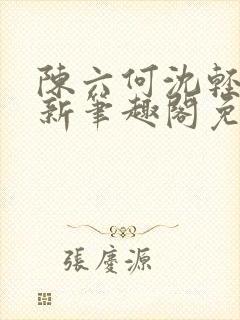 陳六何沈輕
新筆趣閣免
張慶源